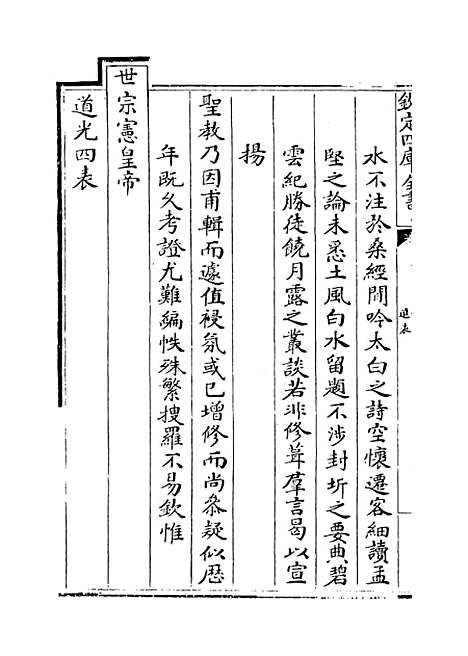 欽定四庫全書
進表
水不注於桑經間吟太白之詩空懷遷客細讀孟
堅之論未悉土風白水留題不涉封圻之要典碧
雲紀勝徒饒月露之叢談若非修葺羣言曷以宣
揚
聖教乃因甫輯而遽值祲氛或已增修而尚叅疑似歴
年既久考證尤難編帙殊繁搜羅不易欽惟
世宗憲皇帝
道光四表